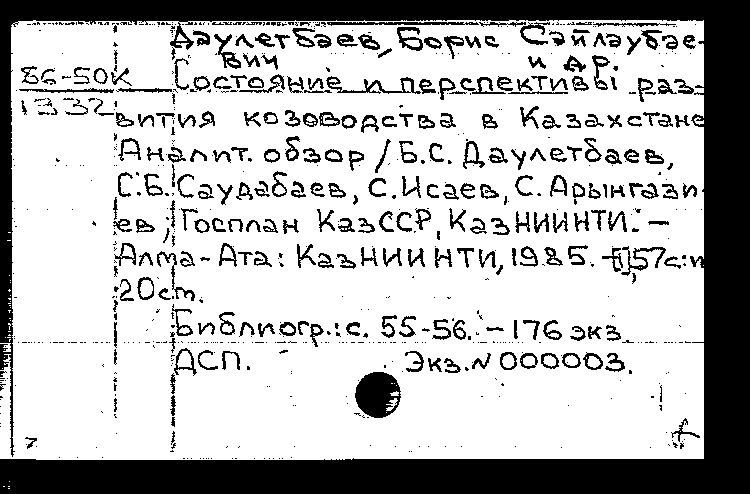 Даулетбаев, Борис Сэйлаубае-
вич и др.
86-50К Состояние и перспективы раз-
1332 вития козоводства в Казахстане
Аналит. обзор / Б.С. Даулетбаев,
С.Б. Саудабаев, С. Исаев, С. Арынгази-
ев; Госплан КазССР, КазНИИНТИ. —
Алма-Ата: КазНИИНТИ, 1985. — 57с.:
20см.
Библиогр.: с. 55-56. — 176 экз.
ДСП. Экз. N 000003.